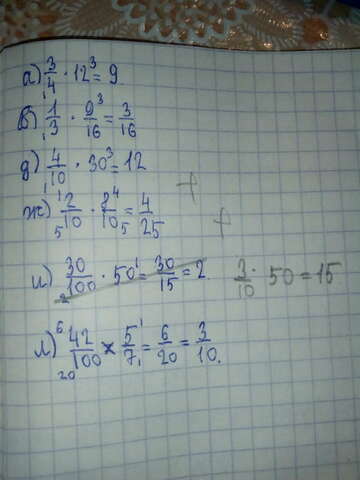 а) 3/4 · 12³ = 9
в) 1/3 · 9³/16 = 3/16
д) 4/10 · 30³ = 12
ж) ¹2/10 · 2⁴/10 = 4/25
и) 30/100 · 50¹ = 30/15 = 2. 3/10 · 50 = 15
л) ⁶42/100 × 5¹/7 = 6/20 = 3/10.